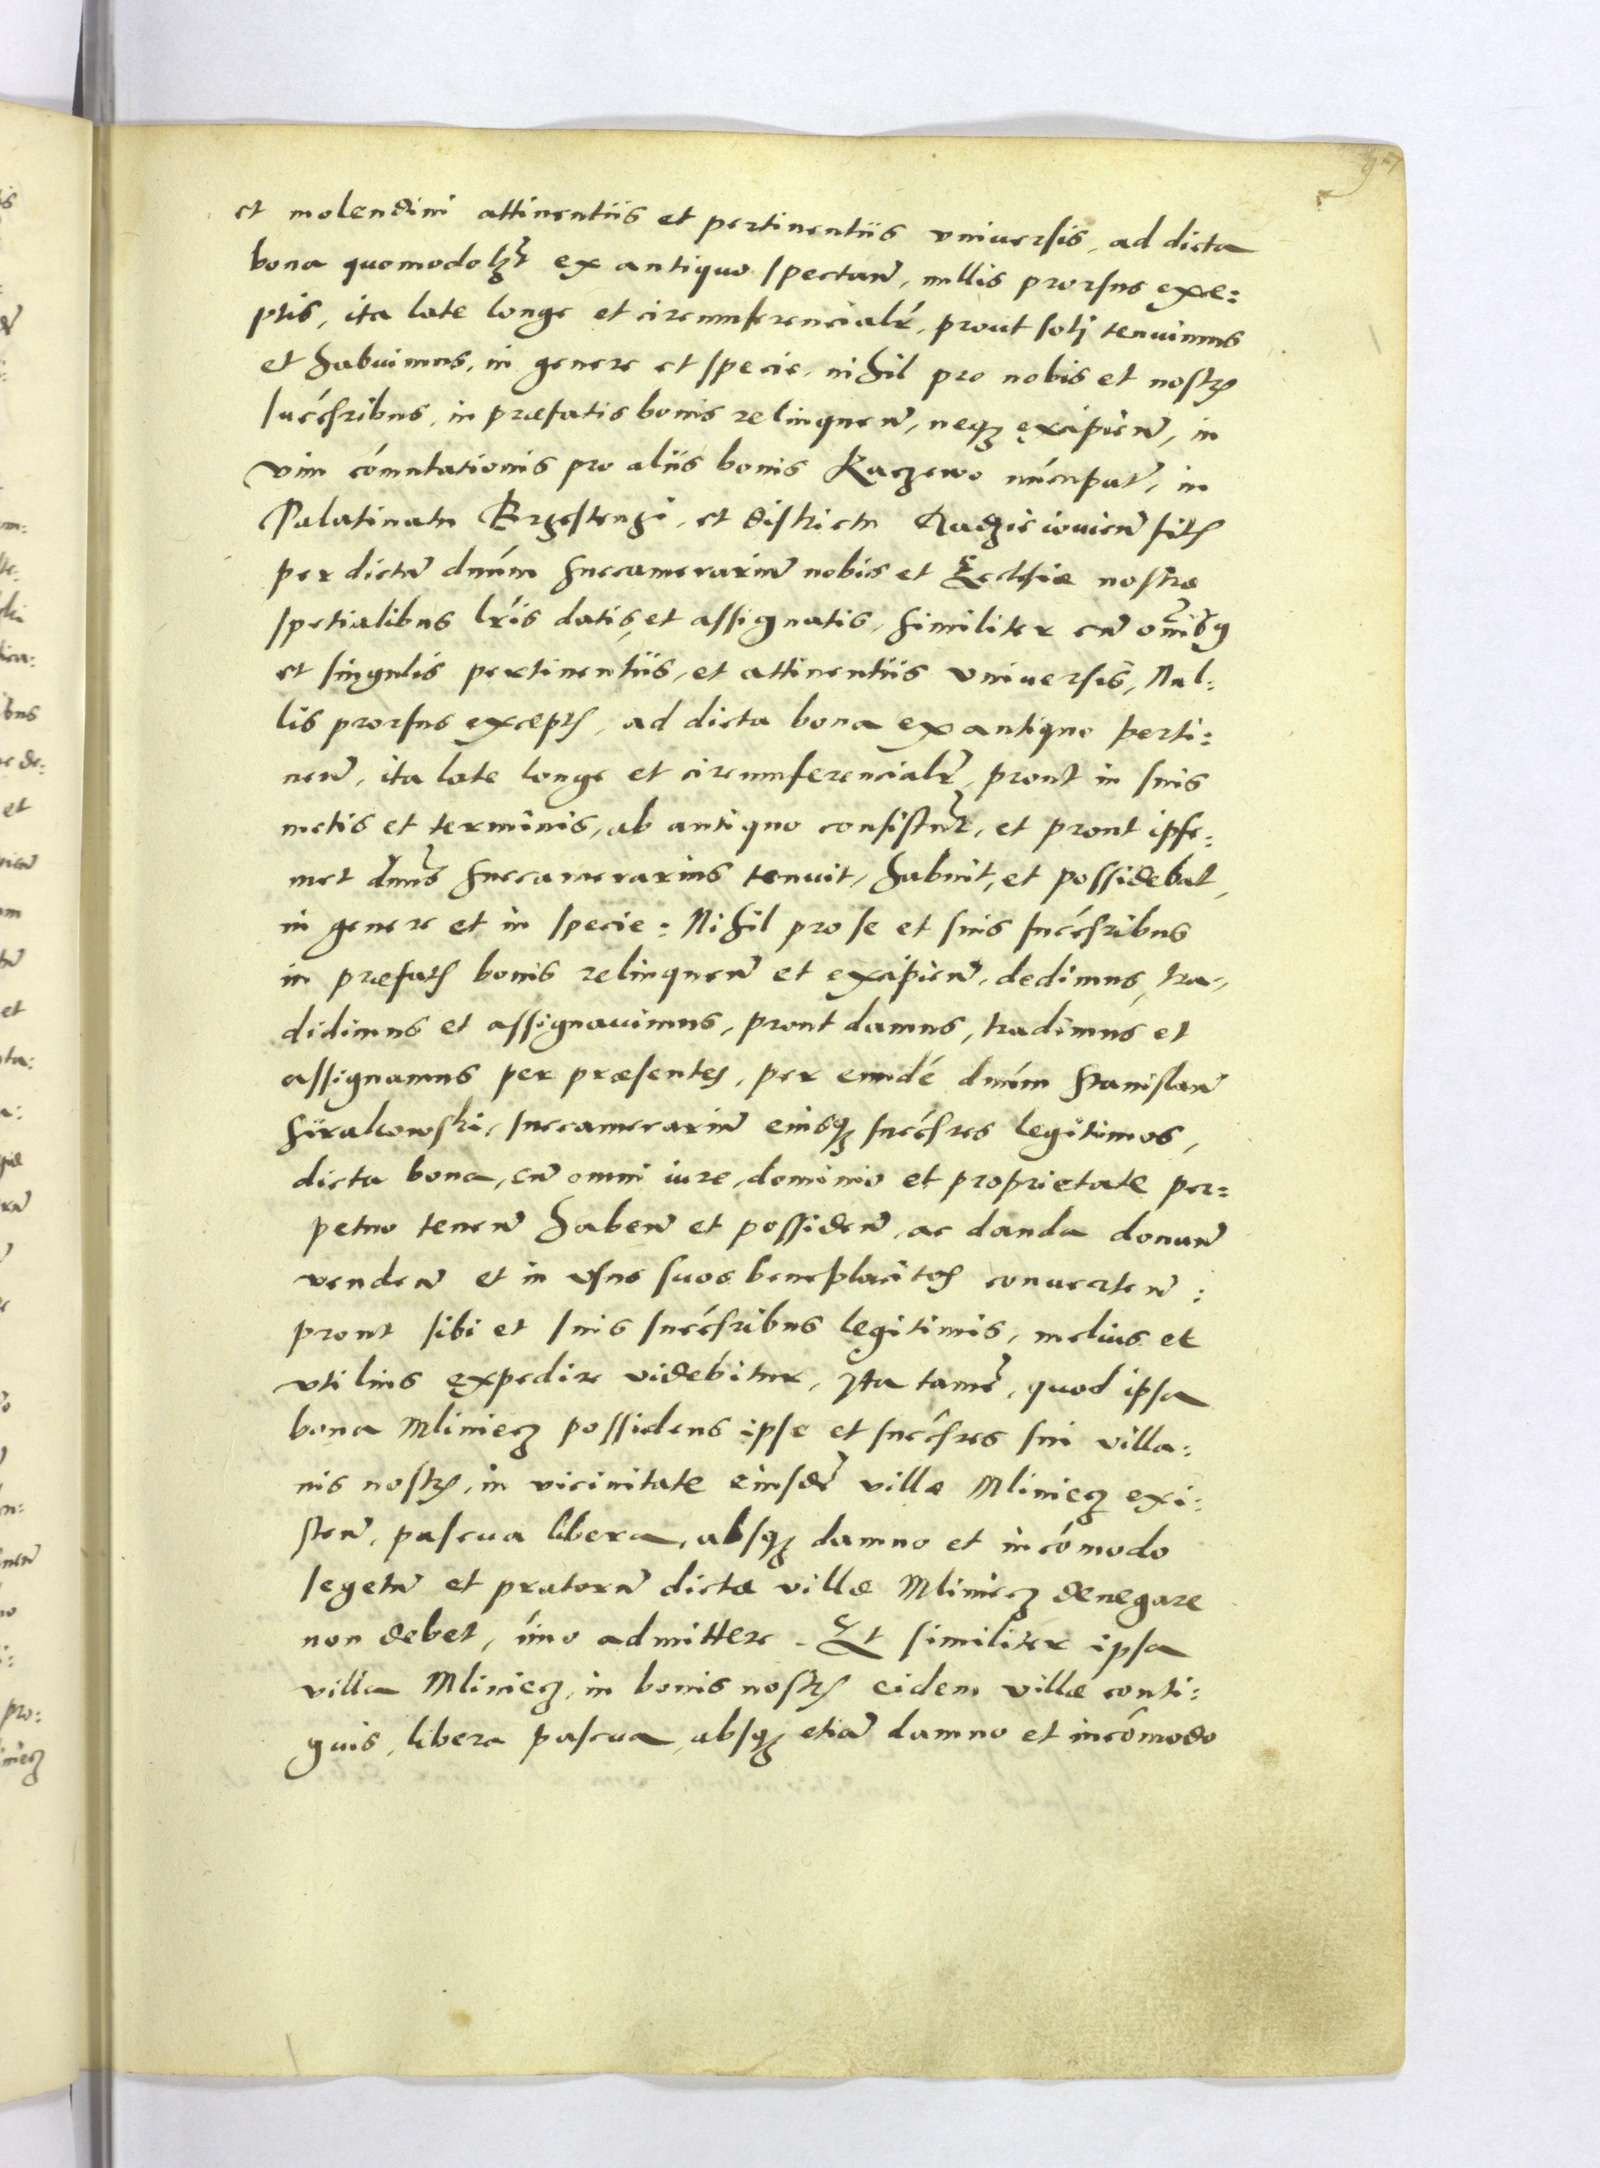 et molendini attinentiis et pertinentiis vniuersis, ad dicta
bona quomodolȝt ex antiquo spectan̄, nullis prorsus exce:
ptis, ita late longe et circumferencialr̄, prout soli tenuimus
et habuimus, in genere et specie, nihil pro nobis et nostꝭ
succ̄sribus, in præfatis bonis relinquen̄, neqꝫ excipien̄, in
vim cōmutationis pro aliis bonis Kaczewo nūcupat̄, in
Palatinatu Brzestenzi, et districtu Radzieiouien̄ sitꝭ
per dictū dnūm succamerariū nobis et Ecclesiæ nostræ
spetialibus lr̄is datis et assignatis, similiter cū omībꝯ
et singulis pertinentiis, et attinentiis vniuersis, Nul:
lis prorsus exceptꝭ, ad dicta bona ex antiquo perti:
nen̄, ita late longe et circumferencialr̄, prout in suis
metis et terminis, ab antiquo consistūt, et prout ipse:
met dn̄us succamerarius tenuit, habuit, et possidebat,
in genere et in specie: Nihil pro se et suis succ̄sribus
in præfatꝭ bonis relinquen̄ et excipien̄, dedimus, tra,
didimus et assignauimus, prout damus, tradimus et
assignamus per præsentes, per eundē dnūm Stanislaū
Sirakowski, succamerariū eiusqꝫ succ̄sres legitimos,
dicta bona, cū omni iure, dominio et proprietate per:
petuo tenen̄ haben̄ et possiden̄, ac danda donan̄
venden̄ et in vsus suos beneplacitos conuerten̄:
prout sibi et suis succ̄sribus legitimis, melius et
vtilius expedire videbitur, Ita tamē, quod ipsa
bona Mliniecz possidens ipse et succ̄sres sui villa:
nis nostꝭ, in vicinitate eiusdē villæ Mliniecz exi:
sten̄, pascua libera, absqꝫ damno et incōmodo
segetū et pratorū dictæ villæ Mliniecz denegare
non debet, īmo admittere. Et similiter ipsa
villa Mliniecz, in bonis nostꝭ eidem villæ conti:
guis, libera pascua, absqꝫ etiā damno et incōmodo